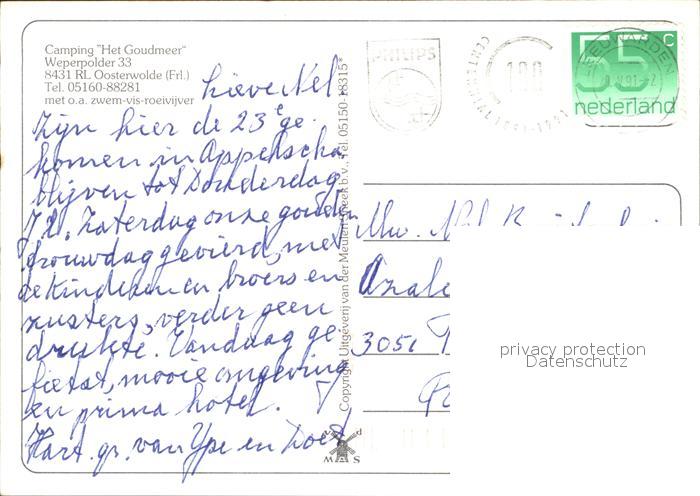 Camping "Het Goudmeer"
Weperpolder 33
8431 RL Oosterwolde (Frl.)
Tel. 05160-88281
met o.a. zwem-vis-roeivijver
Lieve Nel
Zijn hier de 23e ge-
komen in Appelscha
blijven tot Donderdag
Zaterdag onze gouden
trouwdag gevierd, met
de kinderen en broers en
zusters, verder geen
drukte. Vandaag ge-
fietst, mooie omgeving
en prima hotel.
Hart. gr. van Ype en Doet
Copyright Uitgeverij van der Meulen Sneek b.v., Tel. 05150-18315*
PHILIPS
100
1891-1991
55 c
nederland
Mw. Nel
3051
privacy protection
Datenschutz